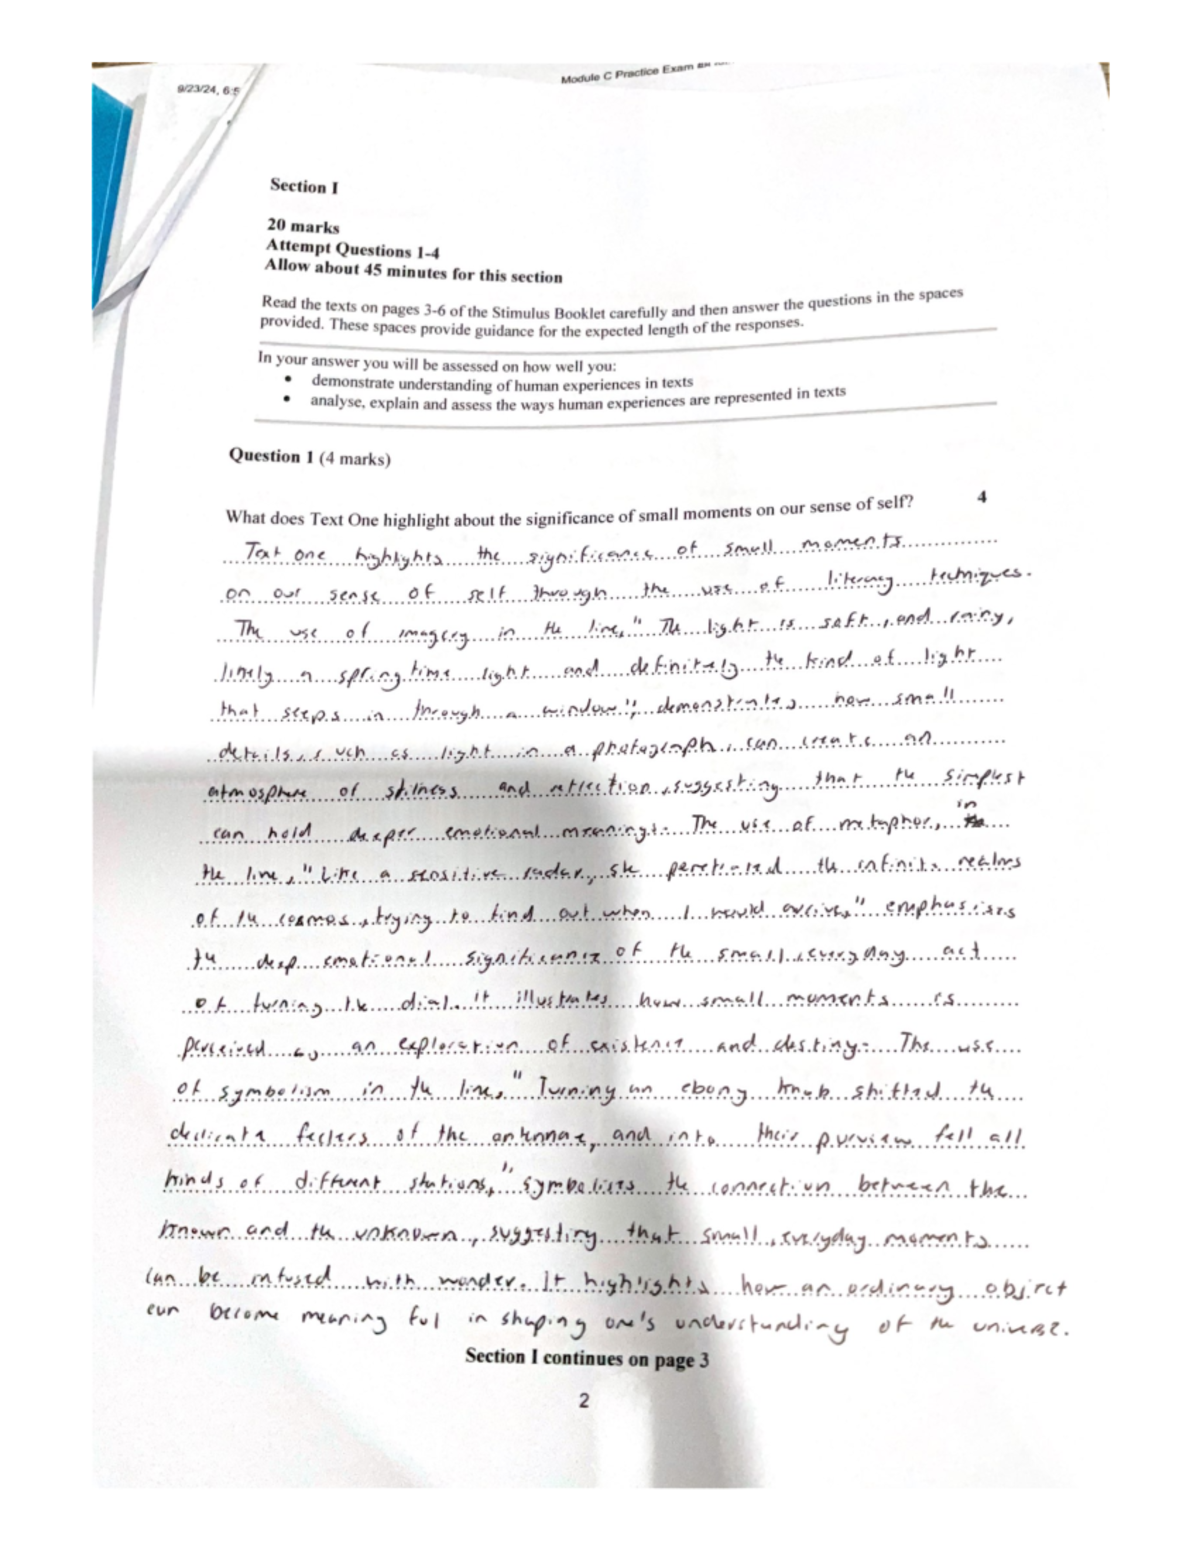 9/23/24, 6:5
Module C Practice Exam
Section I
20 marks
Attempt Questions 1-4
Allow about 45 minutes for this section
Read the texts on pages 3-6 of the Stimulus Booklet carefully and then answer the questions in the spaces
provided. These spaces provide guidance for the expected length of the responses.
In your answer you will be assessed on how well you:
• demonstrate understanding of human experiences in texts
• analyse, explain and assess the ways human experiences are represented in texts
Question 1 (4 marks)
What does Text One highlight about the significance of small moments on our sense of self? 4
Text one highlights the significance of small moments
on our sense of self through the use of literacy techniques.
The use of imagery in the line, "The light is soft, and rainy,
likely a spring time light and definitely the kind of light
that seeps in through a window", demonstrates how small
details, such as light in a photograph, can create an
atmosphere of stillness and reflection, suggesting that the simplest
can hold deeper emotional meanings. The use of metaphor, in
the line, "Like a sensitive radar, she penetrated the infinite realms
of the cosmos, trying to find out when I would arrive," emphasises
the deep emotional significance of the small, everyday act
of turning the dial. It illustrates how small moments is
perceived as an exploration of existence and destiny. The use
of symbolism in the line, "Turning an ebony knob shifted the
delicate feelers of the antennae, and into their purview fell all
kinds of different stations," symbolises the connection between the
known and the unknown, suggesting that small, everyday moments
can be infused with wonder. It highlights how an ordinary object
can become meaning ful in shaping one's understanding of the universe.
Section I continues on page 3
2